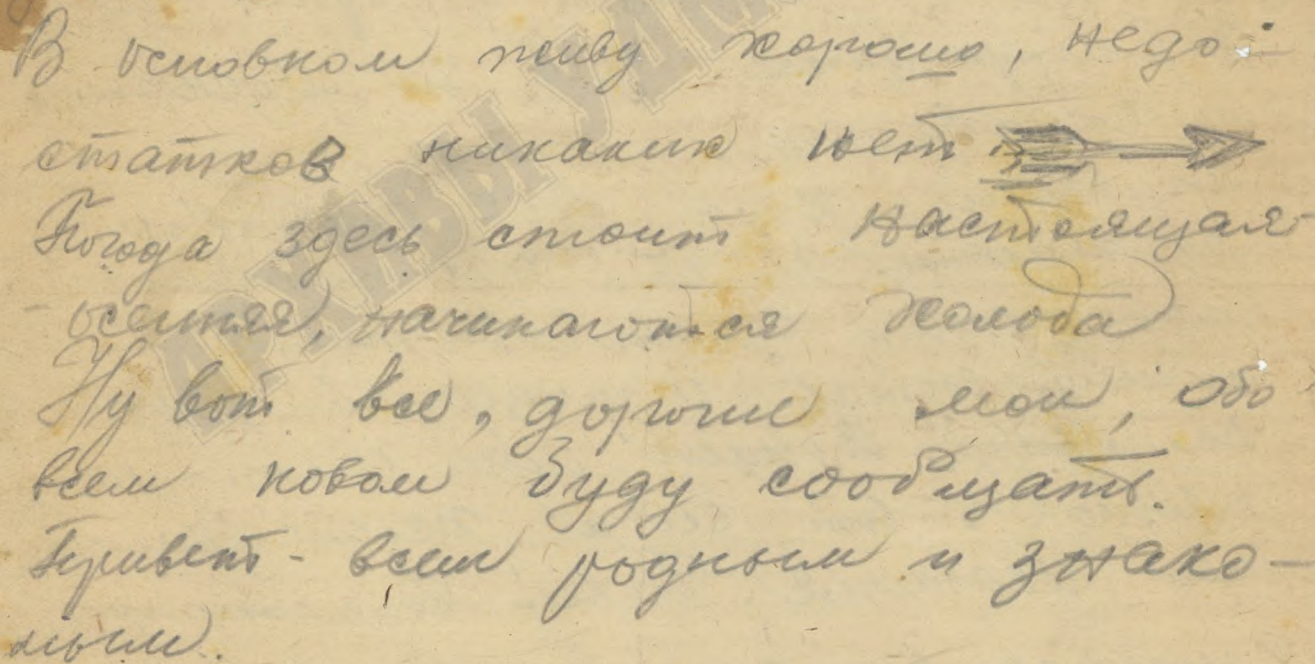 В основном живу хорошо, недо-
статков никаких нет.
Погода здесь стоит настоящая
осенняя, начинаются холода
Ну вот все, дорогие мои, обо
всем новом буду сообщать.
Привет - всем родным и знако-
мым.